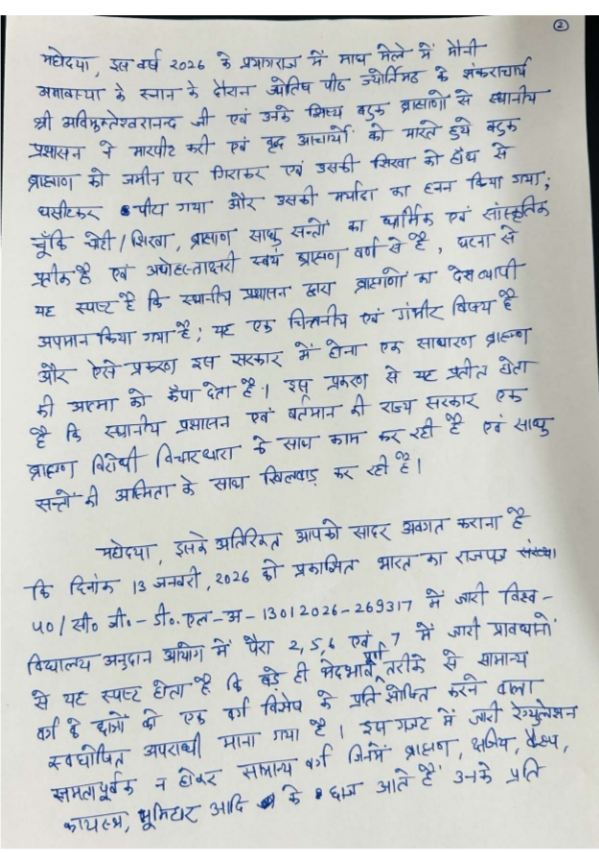 2
महोदया, इस वर्ष 2026 के प्रयागराज में माघ मेले में मौनी
अमावस्या के स्नान के दौरान ज्योतिष पीठ ज्योर्तिमठ के शंकराचार्य
श्री अविमुक्तेश्वरानन्द जी एवं उनके शिष्य बटुक ब्राह्मणों से स्थानीय
प्रशासन ने मारपीट करी एवं वृद्ध आचार्यों को मारते हुये बटुक
ब्राह्मण को जमीन पर गिराकर एवं उसकी सिखा को हाथ से
घसीटकर पीटा गया और उसकी मर्यादा का हनन किया गया;
चूँकि चोटी/शिखा, ब्राह्मण साधु सन्तों का धार्मिक एवं सांस्कृतिक
प्रतीक है एवं अधोहस्ताक्षरी स्वयं ब्राह्मण वर्ण से है, घटना से
यह स्पष्ट है कि स्थानीय प्रशासन द्वारा ब्राह्मणों का देशव्यापी
अपमान किया गया है; यह एक चिन्तनीय एवं गंभीर विषय है
और ऐसे प्रकरण इस सरकार में होना एक साधारण ब्राह्मण
की आत्मा को कँपा देता है। इस प्रकरण से यह प्रतीत होता
है कि स्थानीय प्रशासन एवं वर्तमान की राज्य सरकार एक
ब्राह्मण विरोधी विचारधारा के साथ काम कर रही है एवं साधु
सन्तों की अस्मिता के साथ खिलवाड़ कर रही है।
महोदया, इसके अतिरिक्त आपको सादर अवगत कराना है
कि दिनांक 13 जनवरी, 2026 को प्रकाशित भारत का राजपत्र संख्या
सी० जी०-डी०. एल-अ-13012026-269317 में जारी विश्व-
विद्यालय अनुदान आयोग में पैरा 2,5,6 एवं 7 में जारी प्रावधानों
से यह स्पष्ट होता है कि बड़े ही भेदभाव पूर्ण तरीके से सामान्य
वर्ग के छात्रों को एक वर्ग विशेष के प्रति शोषित करने वाला
स्वघोषित अपराधी माना गया है। इस गजट में जारी रेग्युलेशन
समतापूर्वक न होकर सामान्य वर्ग जिनमें ब्राह्मण, क्षत्रिय, वैश्य,
कायस्थ, भूमिहार आदि के छात्र आते हैं उनके प्रति